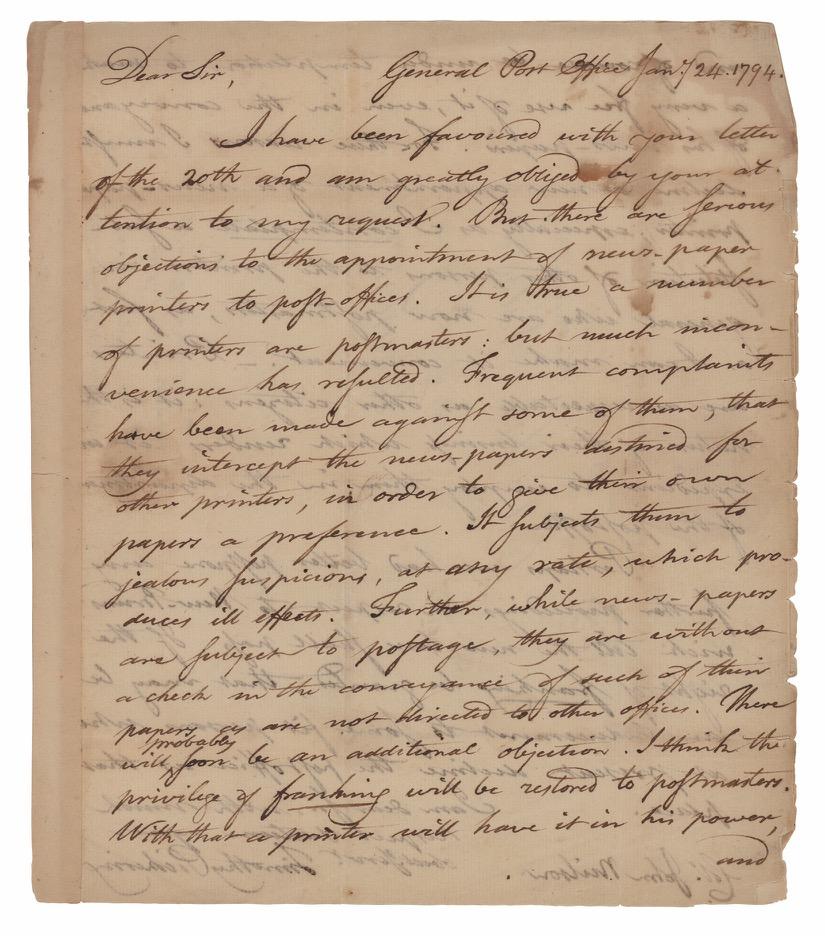 Dear Sir, General Post Office Jany 24. 1794.
I have been favoured with your letter
of the 20th and am greatly obliged by your at-
tention to my request. But there are serious
objections to the appointment of news-paper
printers to post-offices. It is true a number
of printers are postmasters: but much incon-
venience has resulted. Frequent complaints
have been made against some of them, that
they intercept the news-papers destined for
other printers, in order to give their own
papers a preference. It subjects them to
jealous suspicions, at any rate, which pro-
duces ill effects. Further, while news-papers
are subject to postage, they are without
a check in the conveyance of such of their
papers as are not directed to other offices. There
probably
will soon be an additional objection. I think the
privilege of franking will be restored to postmasters.
With that a printer will have it in his power,
and